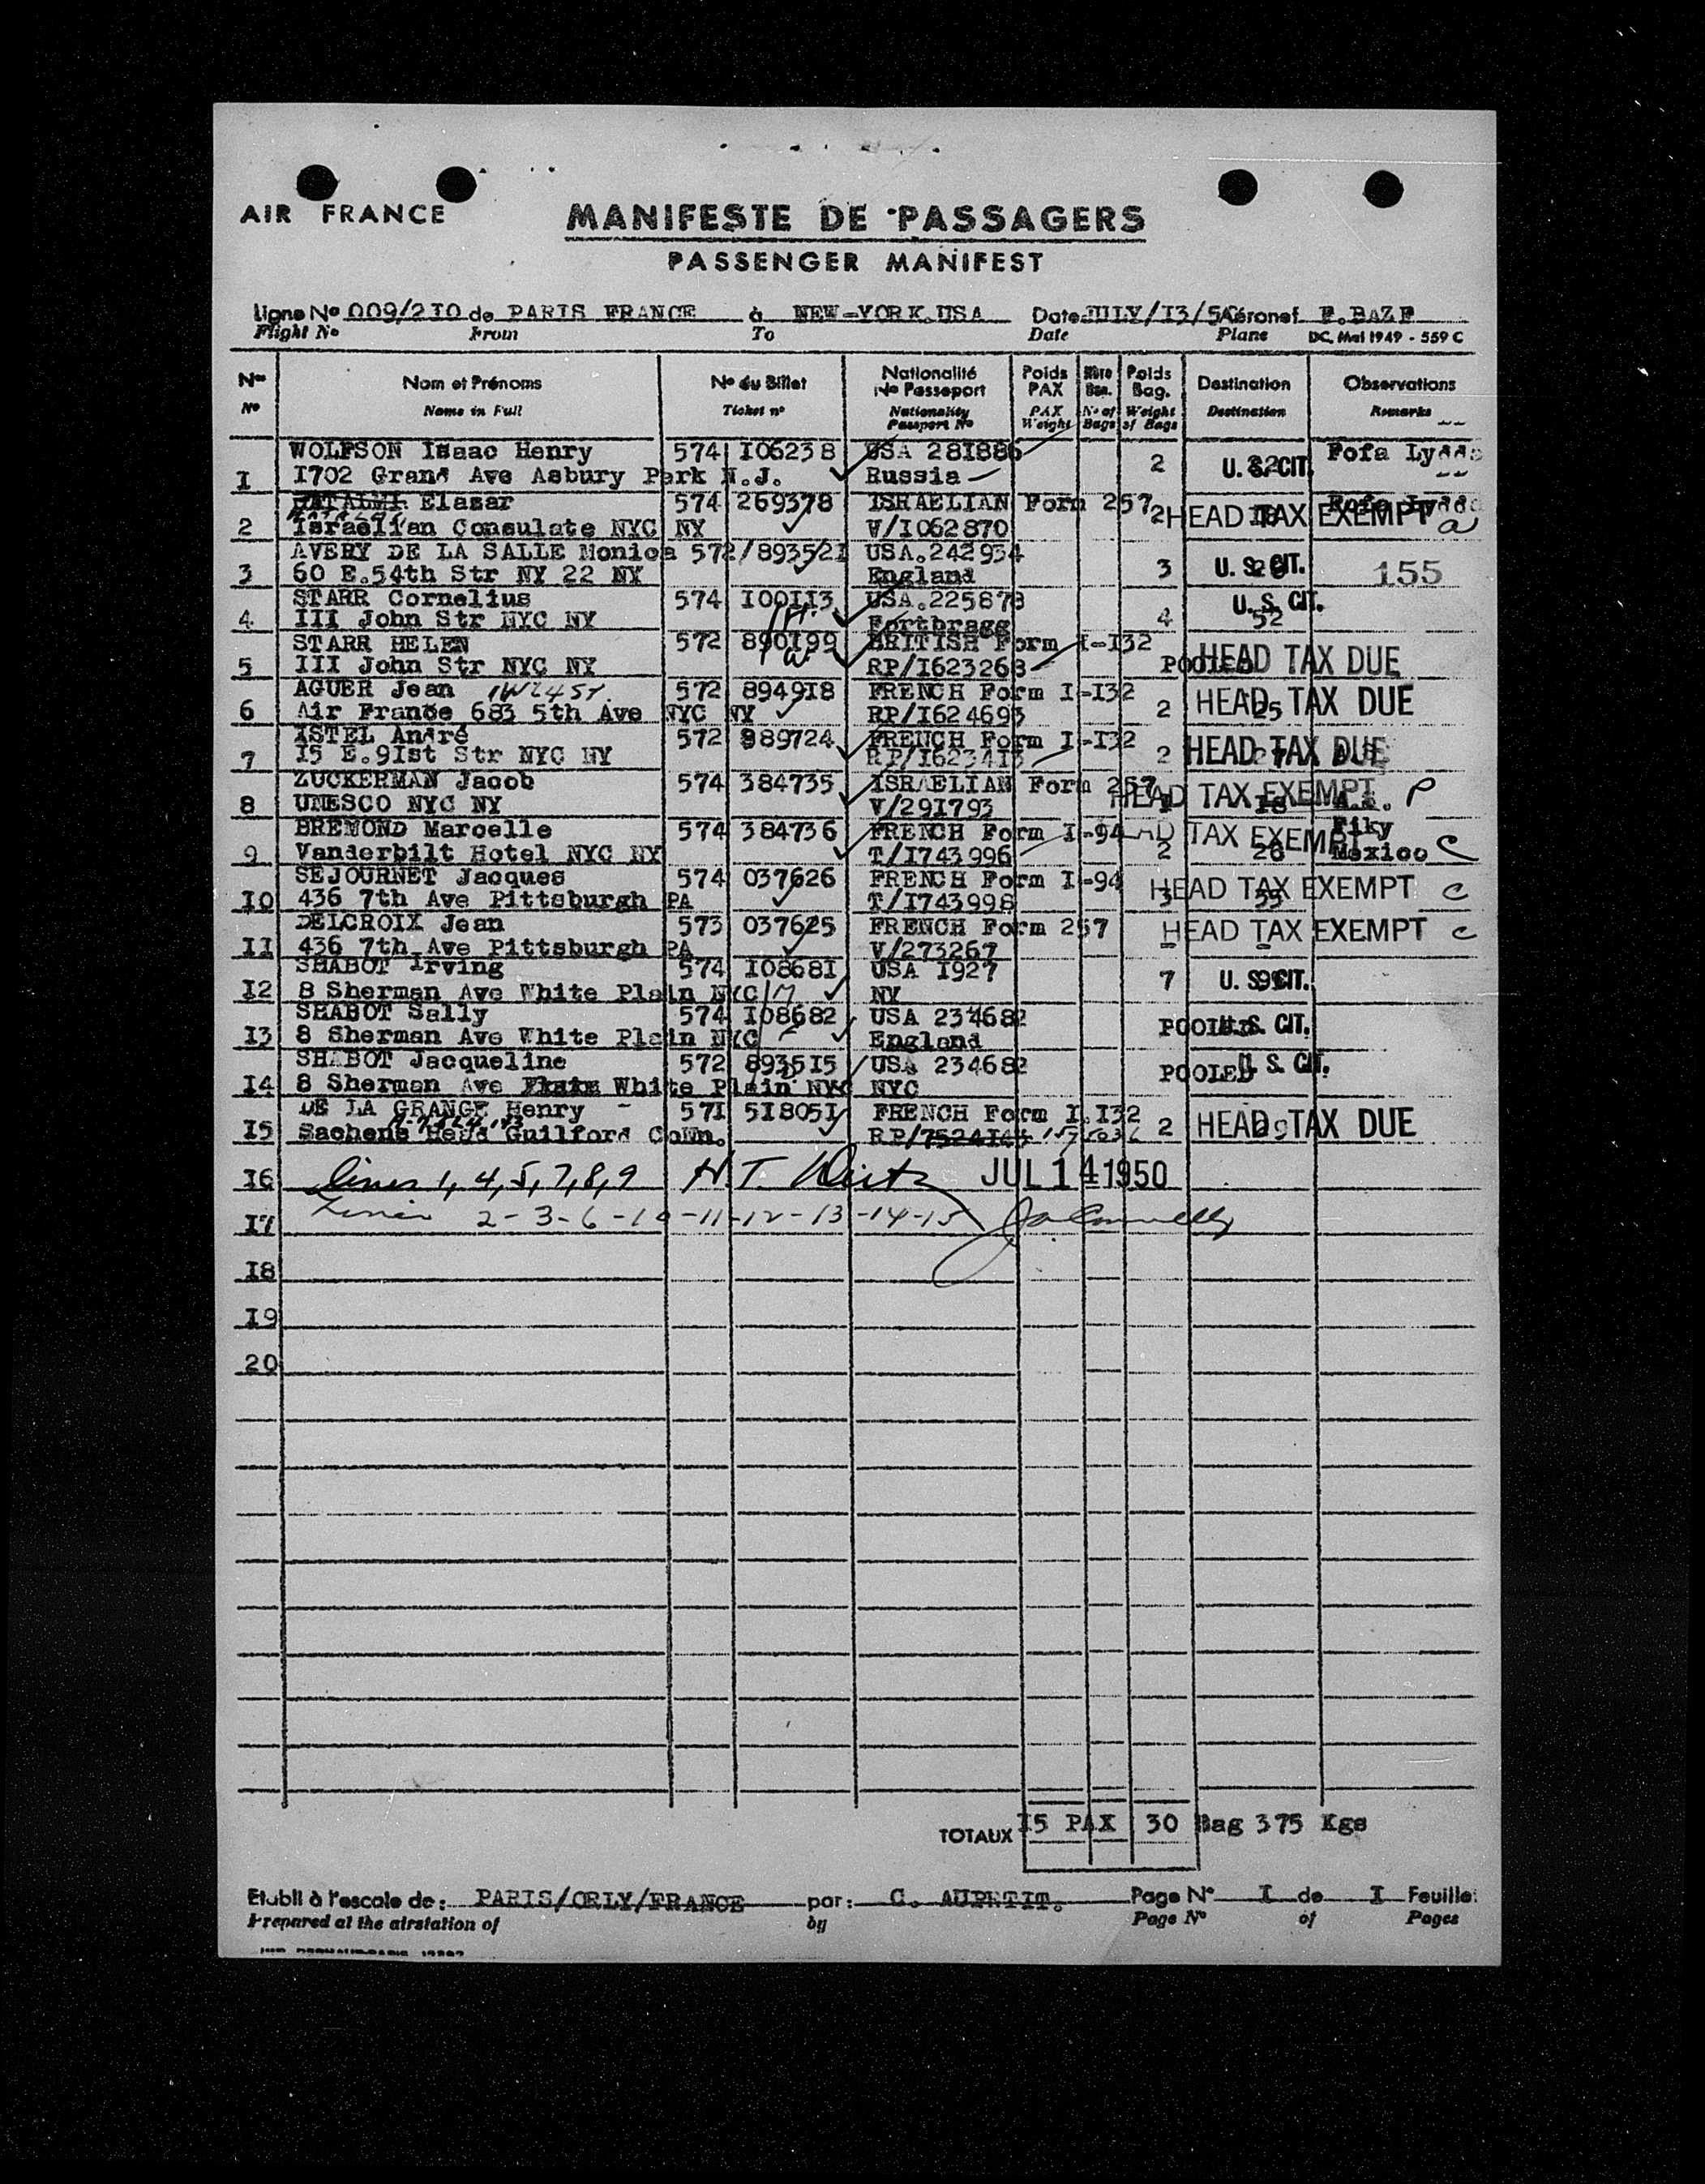 AIR FRANCE
MANIFESTE DE PASSAGERS
PASSENGER MANIFEST
Ligne No 009/2I0 de PARIS FRANCE à NEW-YORK.USA Date JULY/I3/50 Aéronef F.BAZF
Flight No From To Date Plane DC. Mai 1949 - 559 C
Nos Nom et Prénoms No du Billet Nationalité No Passeport Poids PAX Nbre Bag. Poids Bag. Destination Observations
No Name in Full Ticket no Nationality Passport No PAX Weight No of Bags Weight of Bags Destination Remarks
WOLFSON Isaac Henry 574 I06238 USA 28I886 Fofa Lydda
I I702 Grand Ave Asbury Park N.J. Russia 2 U.S. CIT.
Elasar 574 269378 ISRAELIAN Form 257
2 Israelian Consulate NYC NY V/I062870 2 HEAD TAX EXEMPT a
AVERY DE LA SALLE Monica 572/89352I USA.242934
3 60 E.54th Str NY 22 NY England 3 U.S. CIT. 155
STARR Cornelius 574 I00II3 USA.225878 U.S. CIT.
4 III John Str NYC NY Fortbragg 4 52
STARR HELEN 572 890I99 BRITISH Form I-I32
5 III John Str NYC NY RP/I623268 POOLED HEAD TAX DUE
AGUER Jean 1W 24 ST. 572 8949I8 FRENCH Form I-I32
6 Air France 683 5th Ave NYC NY RP/I624693 2 25 HEAD TAX DUE
ISTEL André 572 989724 FRENCH Form I-I32
7 I5 E.9Ist Str NYC NY RP/I6234I3 2 HEAD TAX DUE
ZUCKERMAN Jacob 574 384735 ISRAELIAN Form 257
8 UNESCO NYC NY V/29I793 HEAD TAX EXEMPT P
BREMOND Marcelle 574 384736 FRENCH Form I-94 HEAD TAX EXEMPT Fiky
9 Vanderbilt Hotel NYC NY T/I743996 2 26 Mexico C
SEJOURNET Jacques 574 037626 FRENCH Form I-94
I0 436 7th Ave Pittsburgh PA T/I743998 3 HEAD TAX EXEMPT C
DELCROIX Jean 573 037625 FRENCH Form 257
II 436 7th Ave Pittsburgh PA V/273267 HEAD TAX EXEMPT C
SHABOT Irving 574 I0868I USA I927
I2 8 Sherman Ave White Plain NYC NY 7 U.S. CIT.
SHABOT Sally 574 I08682 USA 234682
I3 8 Sherman Ave White Plain NYC England POOLED U.S. CIT.
SHABOT Jacqueline 572 8935I5 USA 234682
I4 8 Sherman Ave White Plain NYC NYC POOLED U.S. CIT.
DE LA GRANGE Henry 57I 5I805I FRENCH Form I.I32
I5 Sachens Head Guilford Conn. RP/ 2 HEAD TAX DUE
I6 Lines 1, 4, 5, 7, 8, 9 H.T. JUL 14 1950
I7 Lines 2-3-6-10-11-12-13-14-15
I8
I9
20
TOTAUX I5 PAX 30 Bag 375 Kgs
Etabli à l'escale de: PARIS/ORLY/FRANCE par: C. AUPETIT. Page No I de I Feuille:
Prepared at the airstation of by Page No of Pages